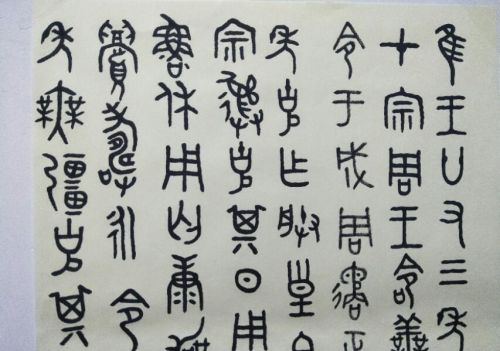 隹王廿又三年
才宗周王令善
令于成周遹正
年克乍朕皇
宗彝克其日用
魯休用匄康
眉壽永令
年無疆克其